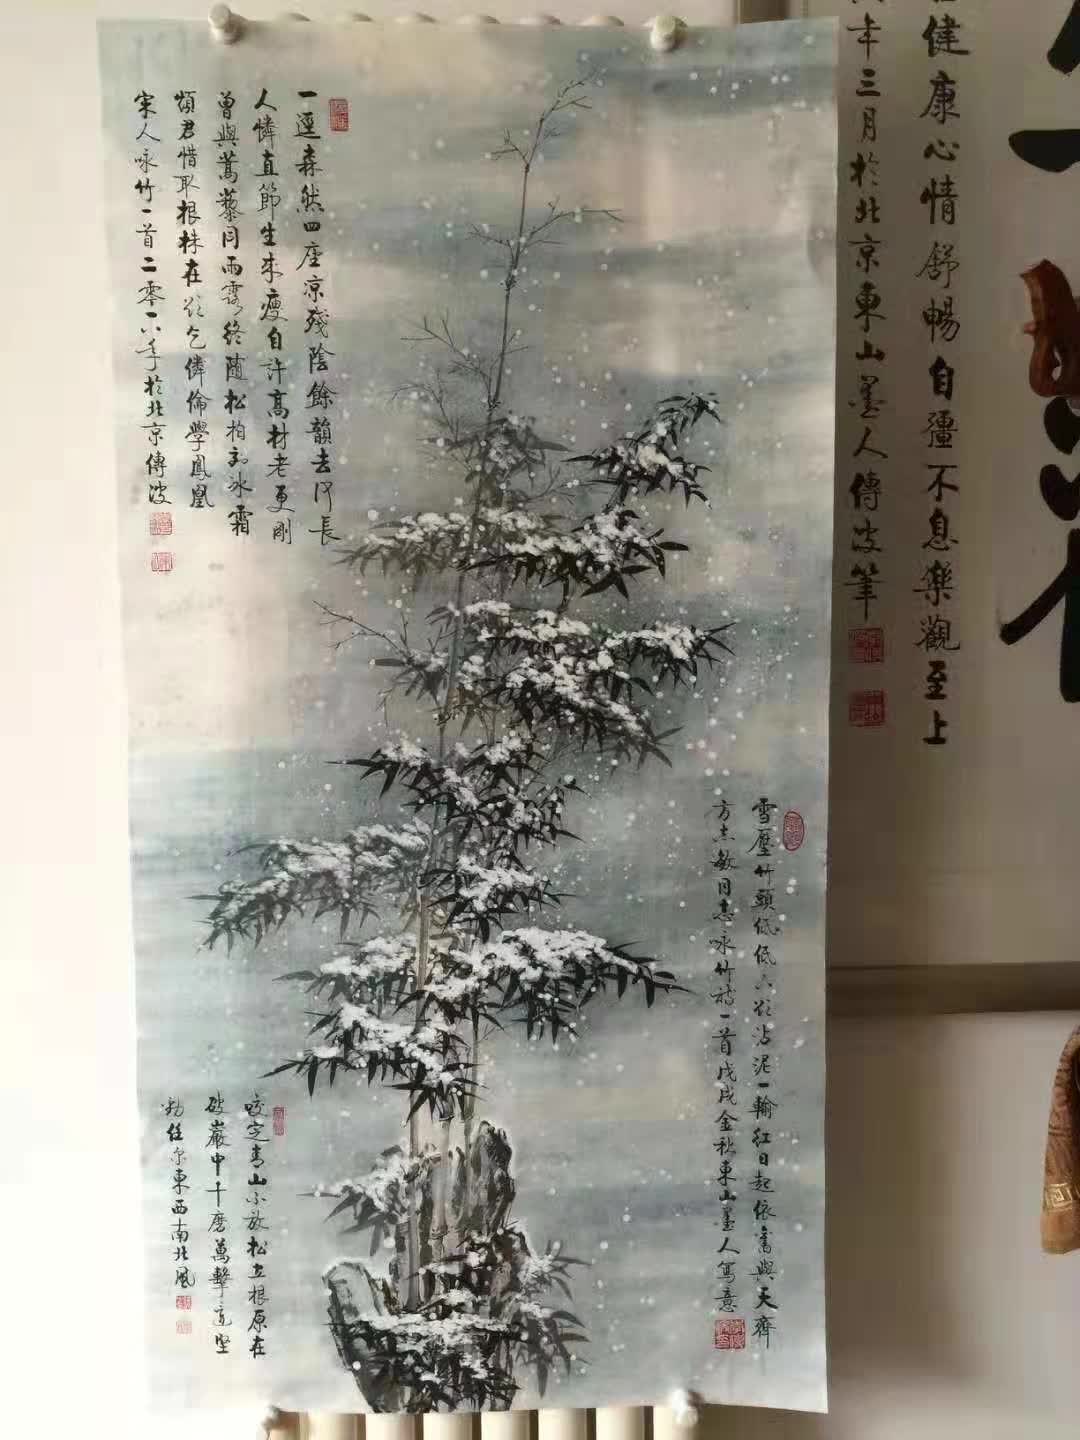 健康心情舒暢自彊不息樂觀至上
年三月於北京東山墨人傳波筆
一逕森然四座凉殘陰餘韻去何長
人憐直節生來瘦自許高材老更剛
曾與蒿藜同雨露終隨松柏到冰霜
煩君惜取根株在欲乞僯倫學鳳凰
宋人咏竹一首二零一八年於北京傳波
雪壓竹頭低低下欲沾泥一輪紅日起依舊與天齊
方志敏同志咏竹詩一首戊戌金秋東山墨人寫意
咬定青山不放松立根原在
破巖中千磨萬擊還堅
勁任尔東西南北風